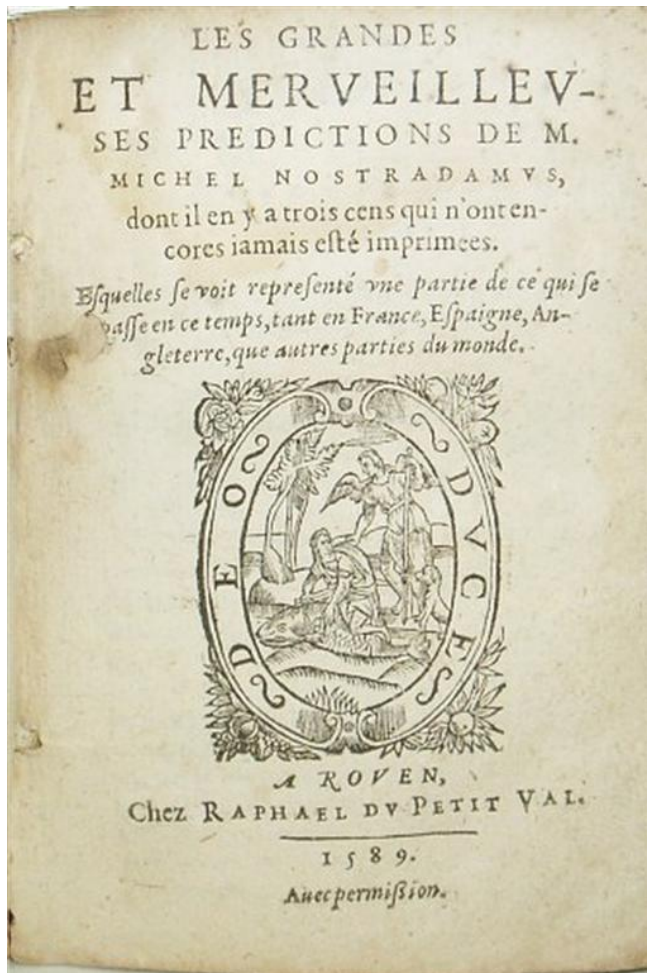 LES GRANDES
ET MERVEILLEV-
SES PREDICTIONS DE M.
MICHEL NOSTRADAMVS,
dont il en y a trois cens qui n'ont en-
cores iamais eſté imprimees.
Eſquelles ſe voit repreſenté vne partie de ce qui ſe
paſſe en ce temps, tant en France, Eſpaigne, An-
gleterre, que autres parties du monde.
DEO DVCE
A ROVEN,
Chez RAPHAEL DV PETIT VAL.
1589.
Auec permiſſion.